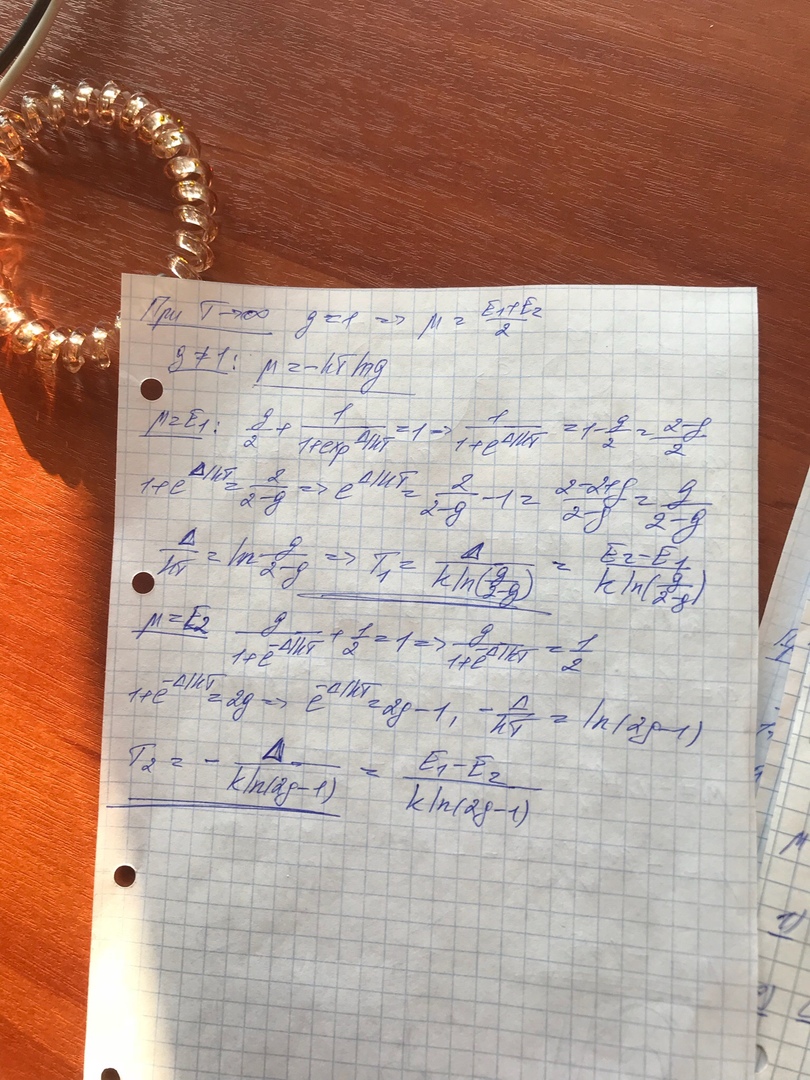 При T→∞ g=1 => μ = (E₁+E₂)/2
g≠1: μ = -kT ln g
μ=E₁: g/2 + 1/(1+exp^(Δ/kT)) = 1 => 1/(1+e^(Δ/kT)) = 1-g/2 = (2-g)/2
1+e^(Δ/kT) = 2/(2-g) => e^(Δ/kT) = 2/(2-g) - 1 = (2-2+g)/(2-g) = g/(2-g)
Δ/kT = ln g/(2-g) => T₁ = Δ/(k ln(g/(2-g))) = (E₂-E₁)/(k ln(g/(2-g)))
μ=E₂ g/(1+e^(-Δ/kT)) + 1/2 = 1 => g/(1+e^(-Δ/kT)) = 1/2
1+e^(-Δ/kT) = 2g => e^(-Δ/kT) = 2g-1, -Δ/kT = ln(2g-1)
T₂ = - Δ/(k ln(2g-1)) = (E₁-E₂)/(k ln(2g-1))